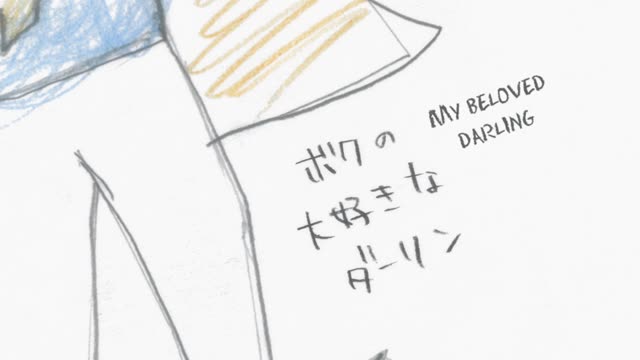 ボクの
大好きな
ダーリン
MY BELOVED
DARLING